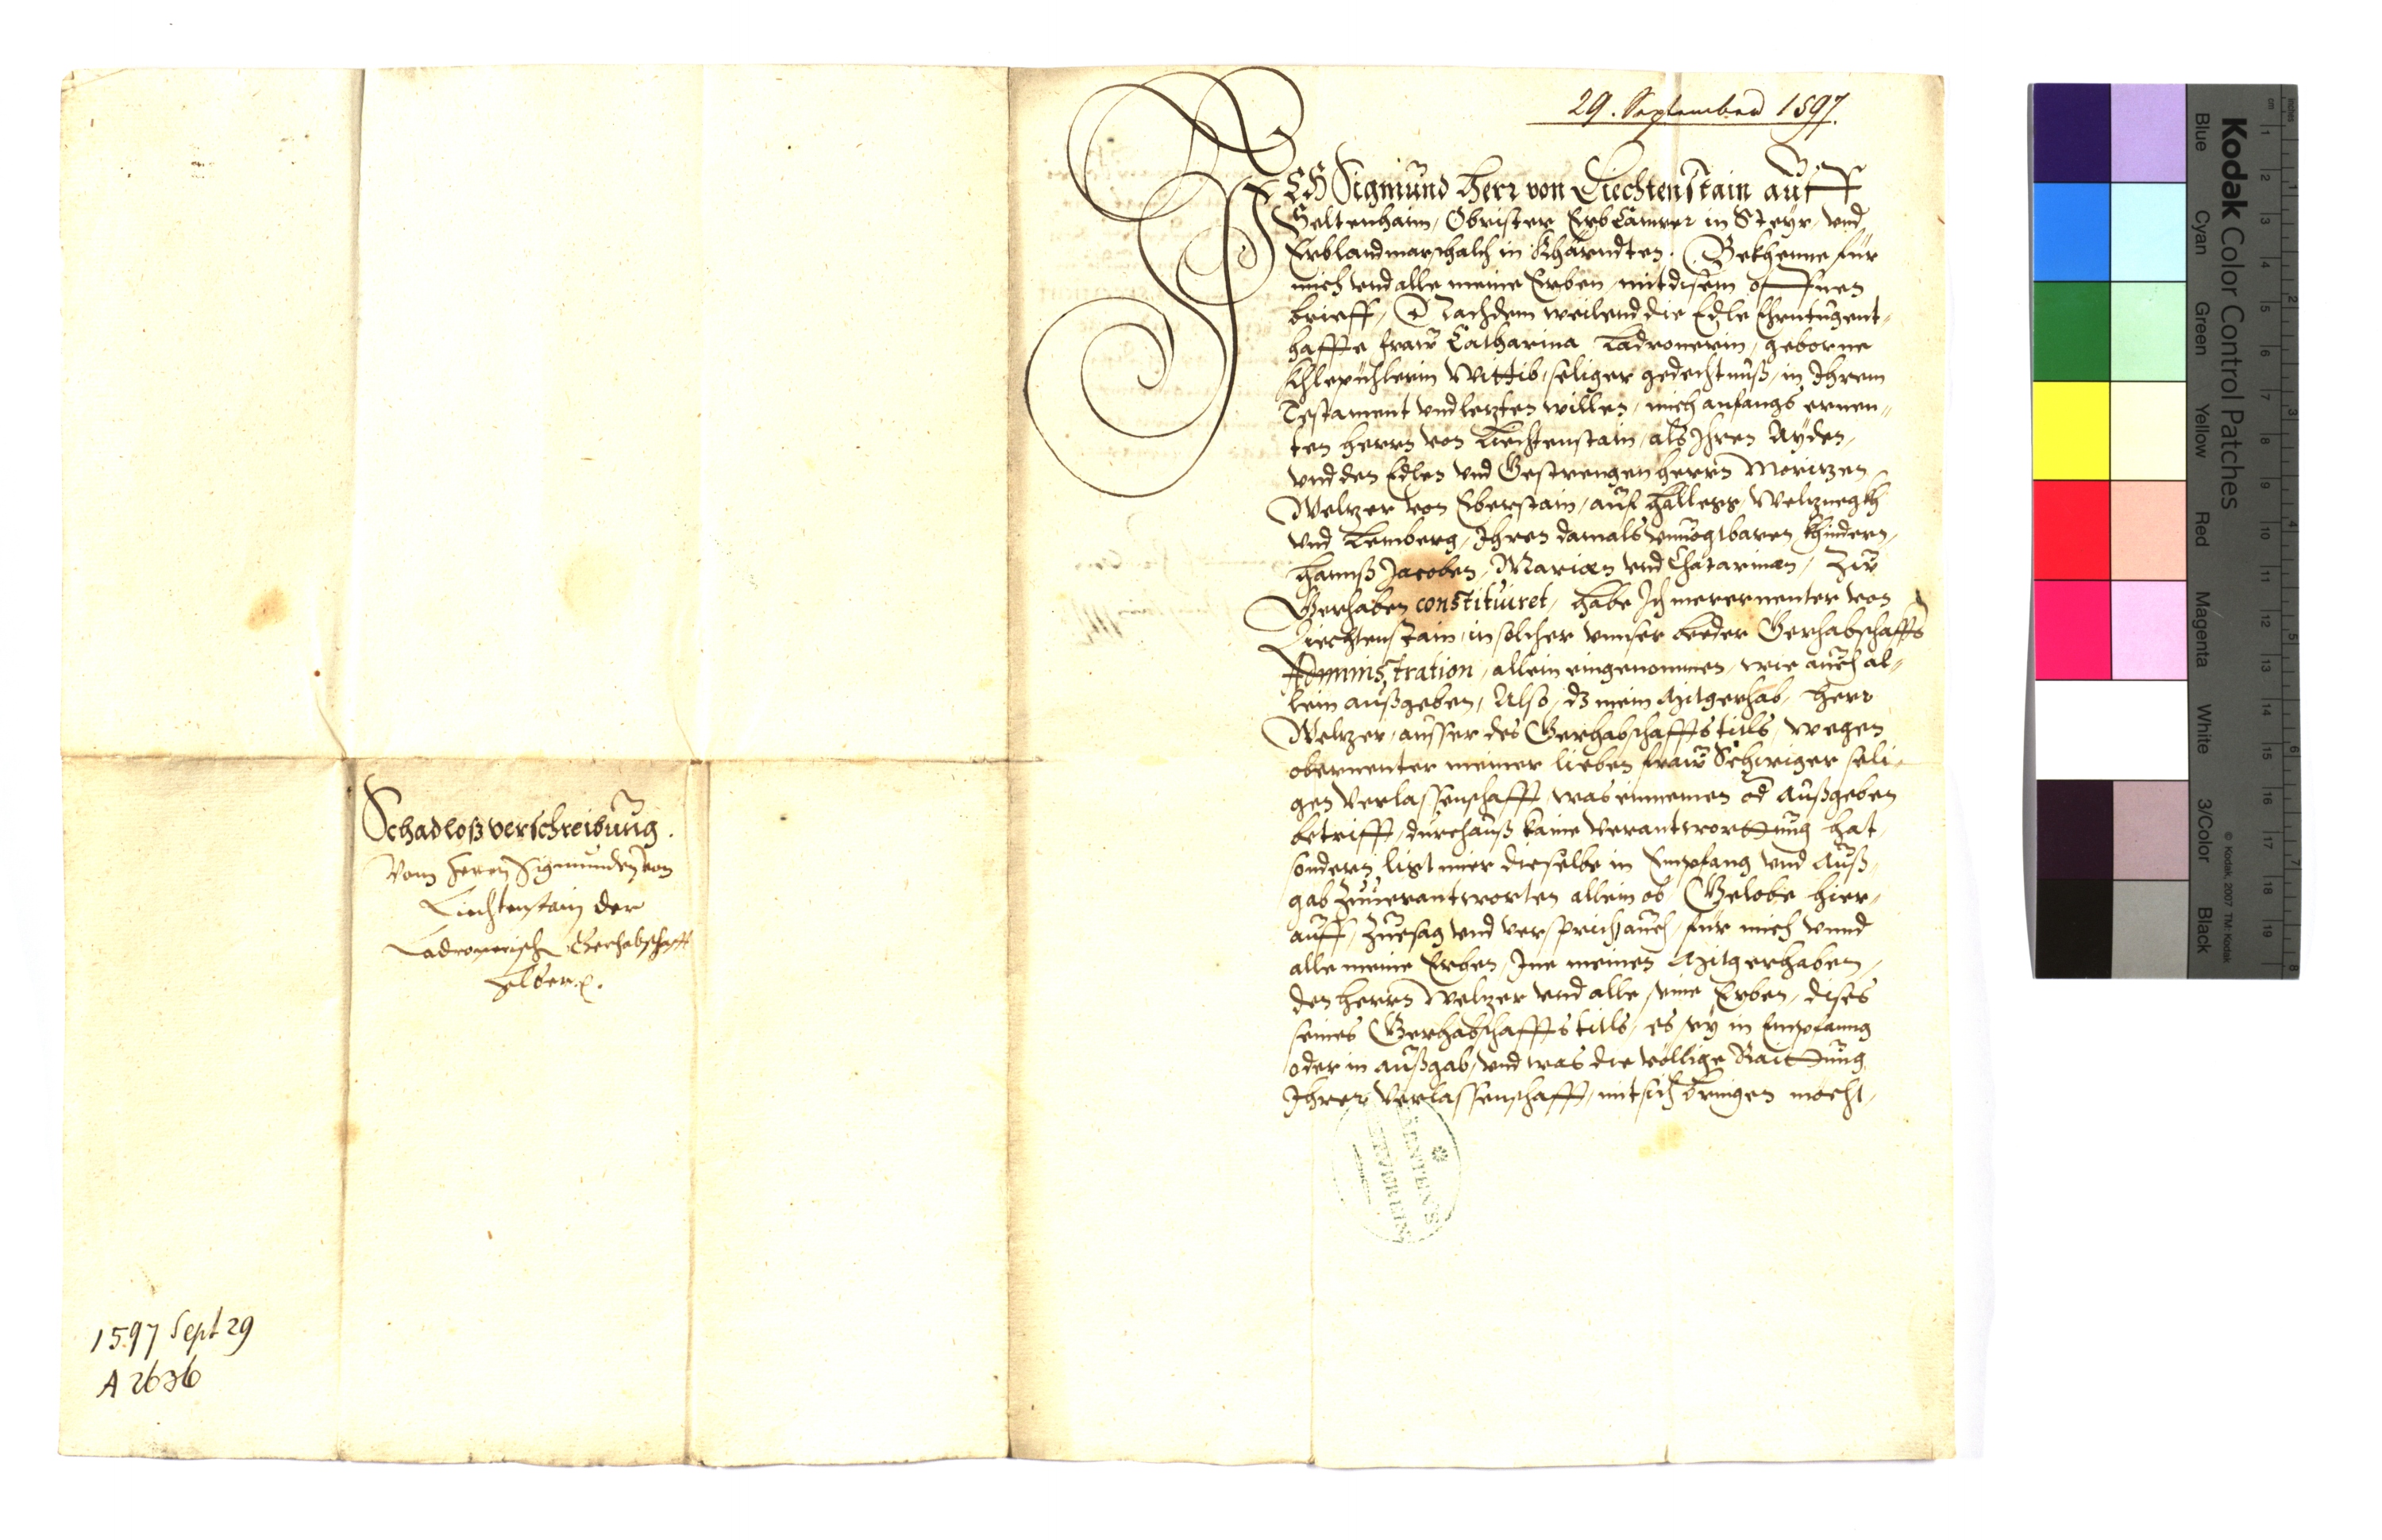 Schadloßverschreibung.
Vom Herrn Sigmunden von
Liechtenstain der
Ladronerisch Gerhabschafft
halber.
1597 Sept 29
A 2636
29. September 1597.
ICH Sigmund Herr von Liechtenstain auff
Geltenhaim, Obrister Erb Camrer in Steyr, und
Erblandmarschalch in Khärndten. Bekhenne für
mich und alle meine Erben, mit disem offnen
brieff, Nachdem weilend die Edle Ehrntugent-
haffte fraw Catharina Ladronerin, geborne
Wittib, seliger gedechtnuß, in Ihrem
Testament und lezten willen, mich anfangs ernen-
ten herrn von Liechtenstain, als Ihren Ayden,
und den Edlen und Gestrengen herrn Moritzen
Welzer von Eberstain, auf Hallegg, Welznegkh
und Lemberg, Ihren damals unuogtbaren khindern,
Hannß Jacoben, Marien und Chatarinæn, Zuo
Gerhaben constituiret, habe Ich merernenter von
Liechtenstain, in solcher unnser beeder Gerhabschaffts
Administration, allein eingenommen, wie auch al-
lein außgeben, Also, dz mein Mitgerhab, Herr
Welzer, ausser des Gerhabschaffts titls, wegen
obernenter meiner lieben fraw Schwiger seli-
gen Verlassenschafft, was einnemen od Außgeben
betrifft, durchauß kaine Verantworttung hat,
sondern ligt mier dieselbe in Empfang und Auß-
gab Zuuerantworten allein ob, Gelobe hier-
auff, Zuesag und versprich auch, für mich unnd
alle meine Erben, Ine meinen Mitgerhaben,
den herrn Welzer und alle seine Erben, dises
seines Gerhabschaffts titls, es sey in Empfanng
oder in Außgab, und was die völlige Raittung
Ihrer Verlassenschafft, mit sich bringen möcht,
Kodak Color Control Patches
Blue Cyan Green Yellow Red Magenta White 3/Color Black
© Kodak, 2007 TM: Kodak